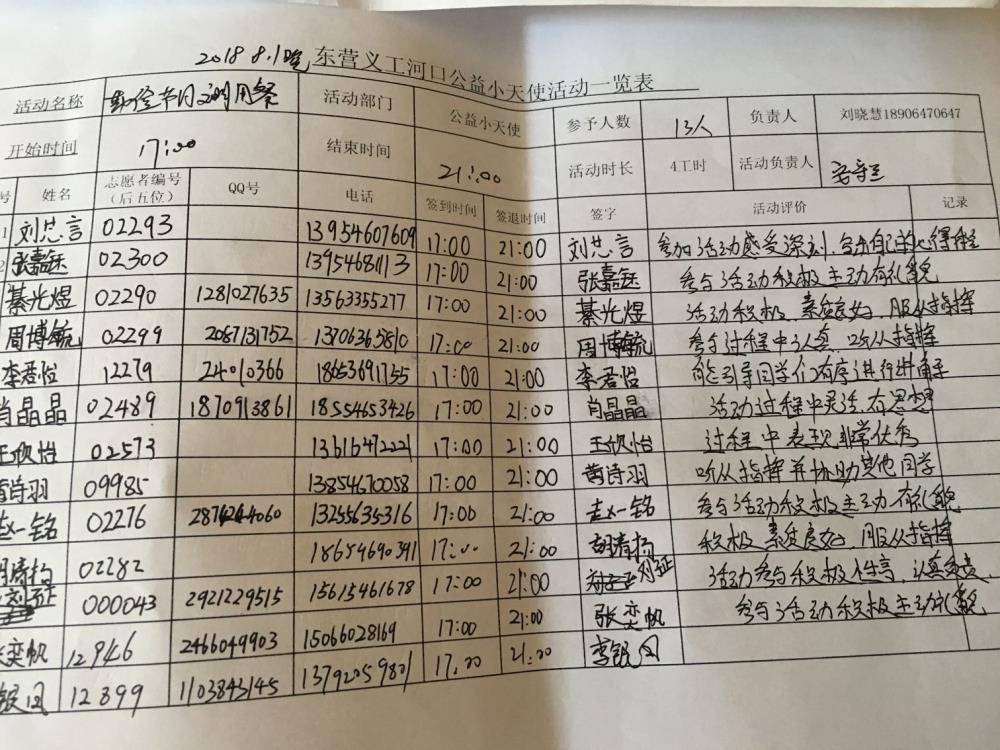 2018 8.1晚 东营义工河口公益小天使活动一览表
活动名称 活动部门 公益小天使 参予人数 13人 负责人 刘晓慧18906470647
开始时间 17:00 结束时间 21:00 活动时长 4工时 活动负责人
号 姓名 志愿者编号（后五位） QQ号 电话 签到时间 签退时间 签字 活动评价 记录
1 刘芯言 02293 13954607609 17:00 21:00 刘芯言 参加活动感受深刻
2 张嘉钰 02300 13954681113 17:00 21:00 张嘉钰 参与活动积极主动有礼貌
綦光煜 02290 1281027635 13563355277 17:00 21:00 綦光煜 活动积极，素质良好，服从指挥
周博毓 02299 2087131752 13706365810 17:00 21:00 周博毓 参与过程中认真，听从指挥
李君怡 12279 24010366 18653691755 17:00 21:00 李君怡 能引导同学们有序进行
肖晶晶 02489 1870913861 18554653426 17:00 21:00 肖晶晶 活动过程中灵活，有思想
王欣怡 02573 13616472221 17:00 21:00 王欣怡 过程中表现非常优秀
诗羽 09985 13854670058 17:00 21:00 诗羽 听从指挥并协助其他同学
赵一铭 02276 13255635316 17:00 21:00 赵一铭 参与活动积极主动有礼貌
02282 18654690391 17:00 21:00 胡清扬 积极，素质良好，服从指挥
000043 2921229515 15615461678 17:00 21:00 活动参与积极，认真负责
张奕帆 12946 2466049903 15066028169 17:00 21:00 张奕帆 参与活动积极主动礼貌
银凤 12899 1103843145 13792059801 17:00 21:00 李银凤